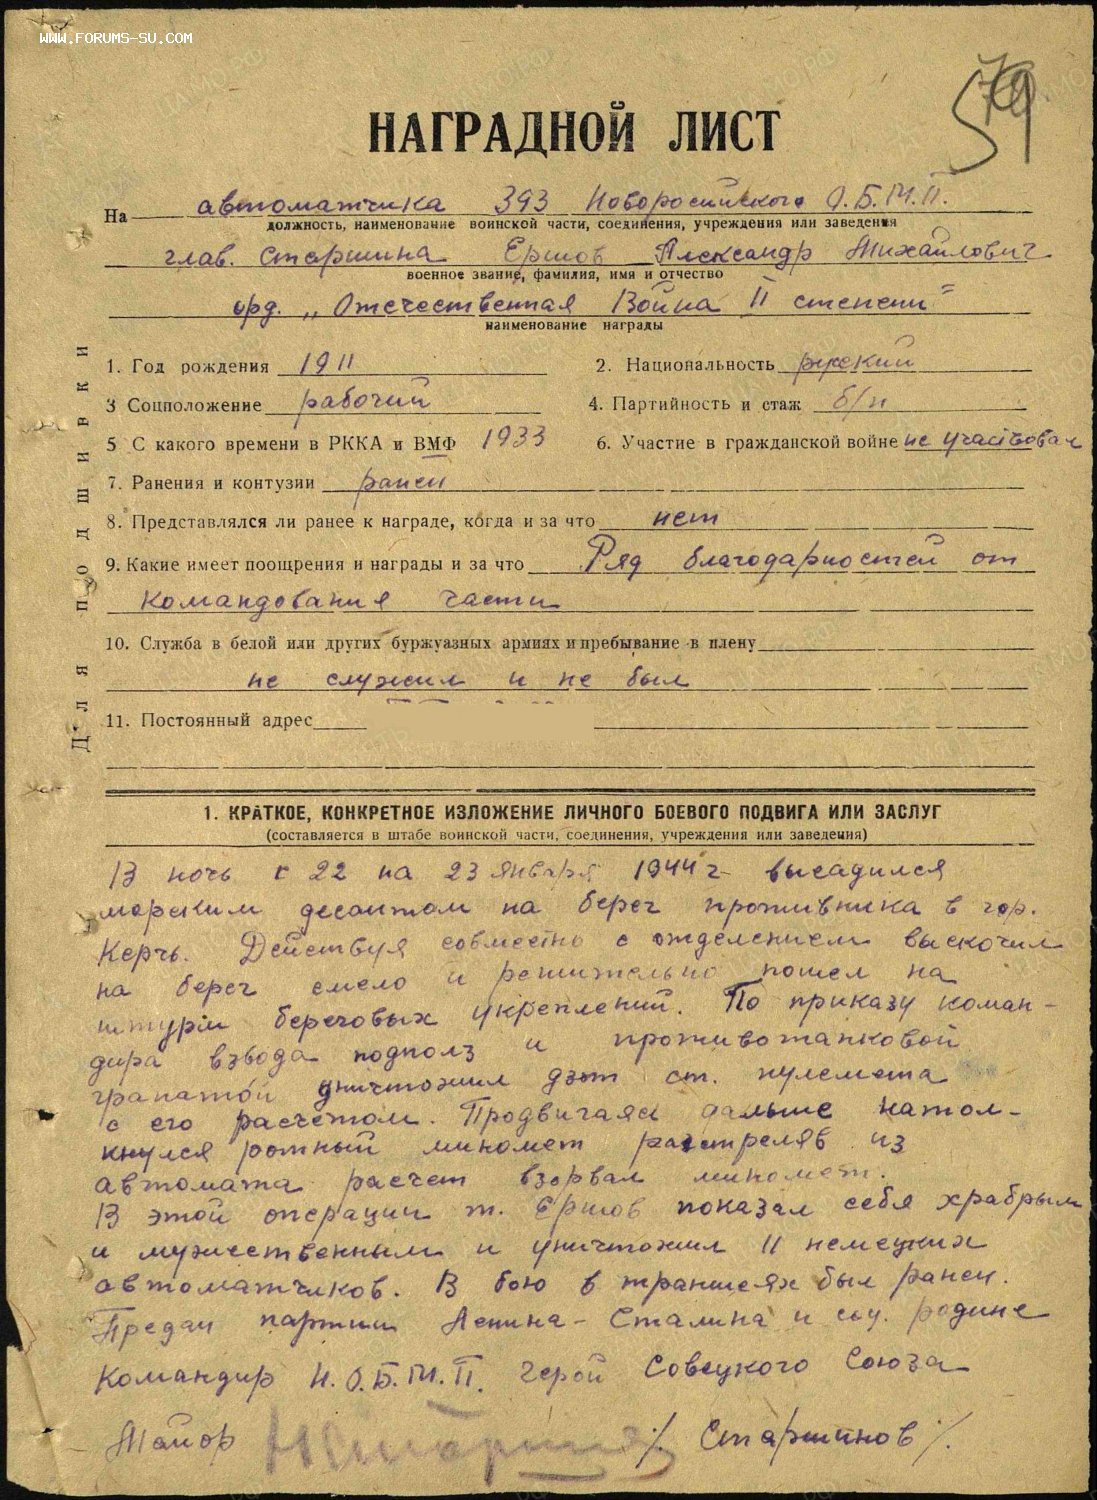 WWW.FORUMS-SU.COM
НАГРАДНОЙ ЛИСТ
На автоматчика 393 Новоросийского О.Б.М.П.
должность, наименование воинской части, соединения, учреждения или заведения
глав. старшина Ершов Александр Михайлович
военное звание, фамилия, имя и отчество
орд. „Отечественная Война II степени"
наименование награды
1. Год рождения 1911
2. Национальность русский
3 Соцположение рабочий
4. Партийность и стаж б/п
5 С какого времени в РККА и ВМФ 1933
6. Участие в гражданской войне не участвовал
7. Ранения и контузии ранен
8. Представлялся ли ранее к награде, когда и за что нет
9. Какие имеет поощрения и награды и за что Ряд благодарностей от
командования части
10. Служба в белой или других буржуазных армиях и пребывание в плену
не служил и не был
11. Постоянный адрес
Для подшивки
1. КРАТКОЕ, КОНКРЕТНОЕ ИЗЛОЖЕНИЕ ЛИЧНОГО БОЕВОГО ПОДВИГА ИЛИ ЗАСЛУГ
(составляется в штабе воинской части, соединения, учреждения или заведения)
В ночь с 22 на 23 января 1944 г. высадился
морским десантом на берег противника в гор.
Керчь. Действуя совместно с отделением выскочил
на берег смело и решительно пошел на
штурм береговых укреплений. По приказу коман-
дира взвода подполз и противотанковой
гранатой уничтожил дзот ст. пулемета
с его расчетом. Продвигаясь дальше натол-
кнулся ротный миномет расстреляв из
автомата расчет взорвал миномет.
В этой операции т. Ершов показал себя храбрым
и мужественным и уничтожил 11 немецких
автоматчиков. В бою в траншеях был ранен.
Предан партии Ленина-Сталина и соц. родине
Командир Н.О.Б.М.П. Герой Совецкого Союза
Майор /. Старшинов /.